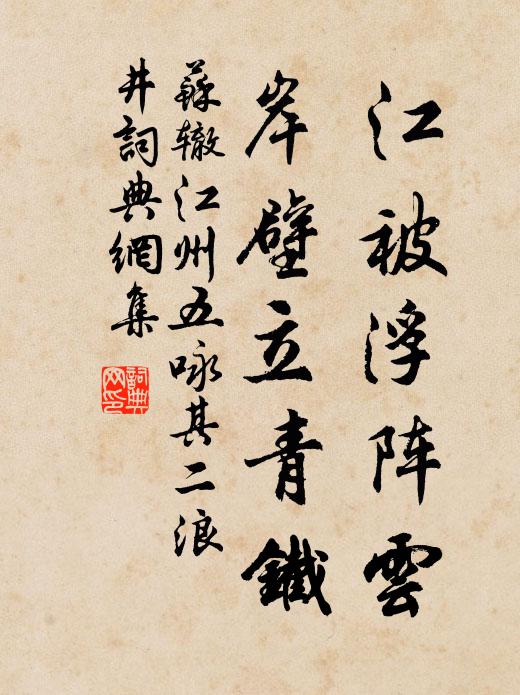 江被浮阵雲
岸壁立青鐵
蘇辙江州五咏其二浪
井詞典網集
詞典网印